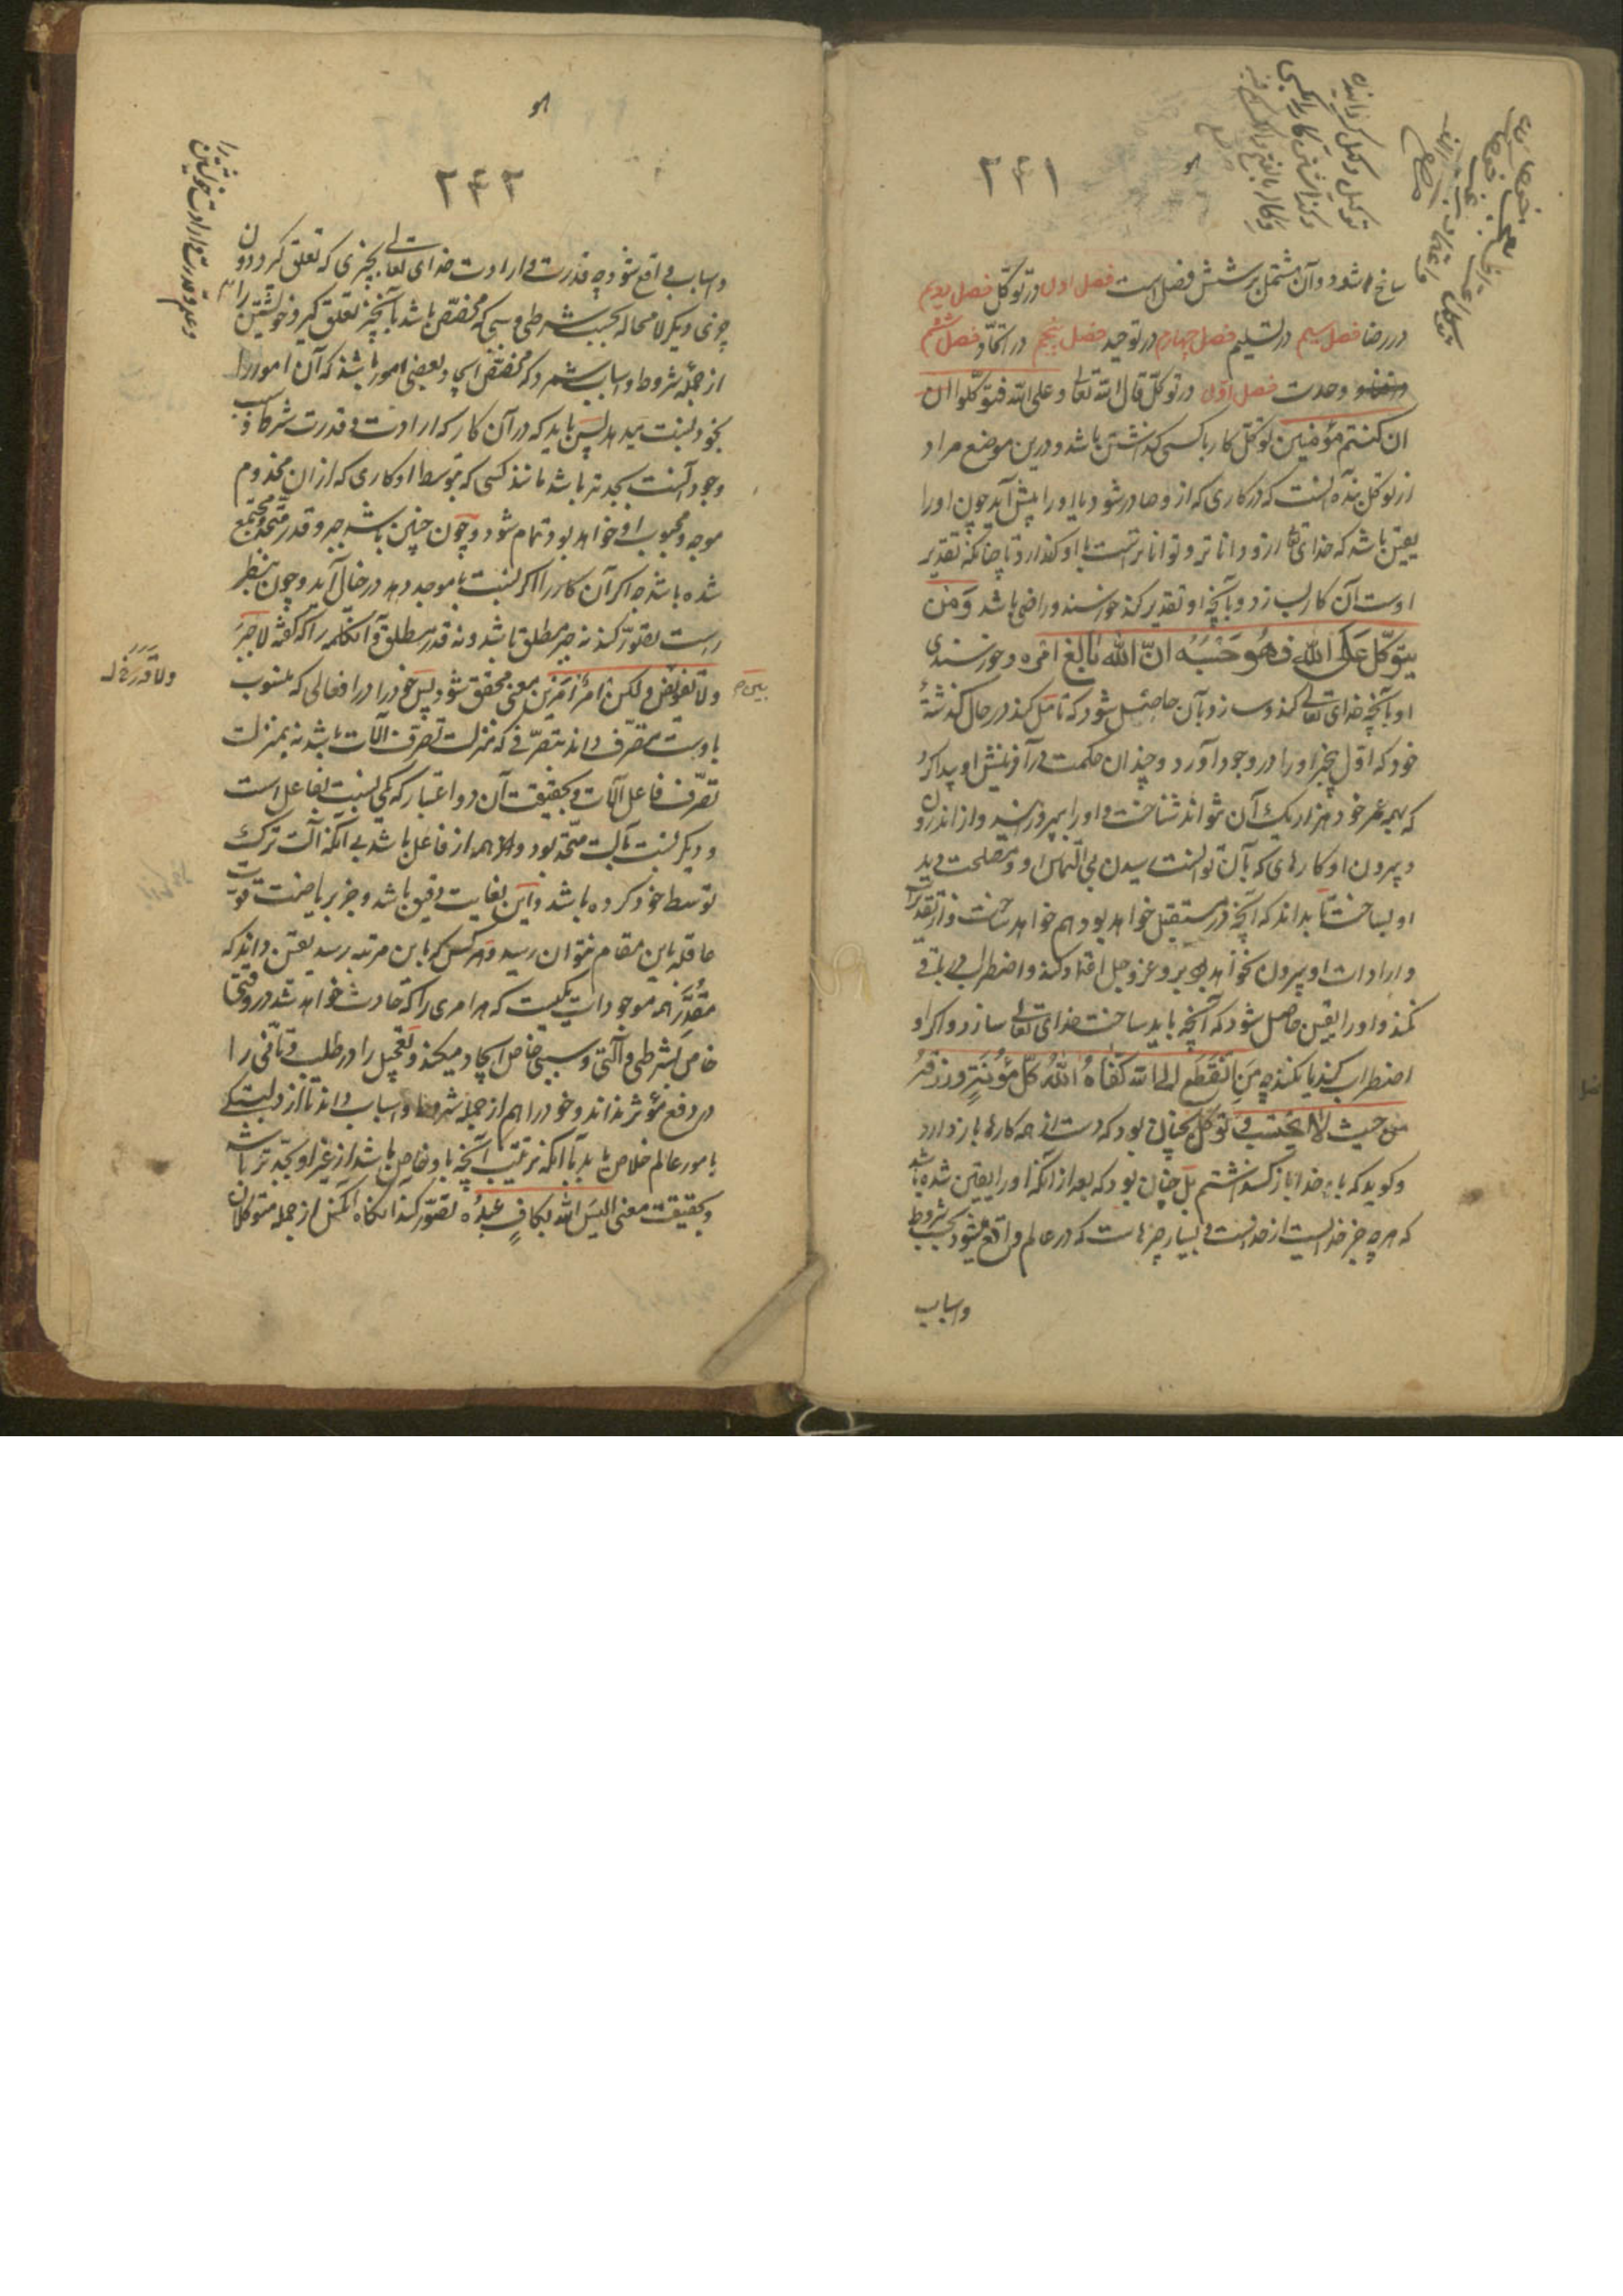 ۲۴۱
سانح شود و آن مشتمل بر شش فصل است فصل اول در توکل فصل دویم
در رضا فصل سیم در تسلیم فصل چهارم در توحید فصل پنجم در اتحاد فصل ششم
در وحدت فصل اول در توکل قال الله تعالی و علی الله فتوکلوا ان
ان کنتم مؤمنین توکل کار با کسی گذاشتن باشد و درین موضع مراد
از توکل بنده آنست که در کاری که ازو صادر شود یا او را پیش آید چون او را
یقین باشد که خدای تعالی ازو داناتر و تواناترست با او گذارد تا چنانکه تقدیر
اوست آن کار بسازد و بآنچه او تقدیر کند خورسند و راضی باشد وَمَن
یتوکّل عَلَی الله فهُوَ حَسْبُه انّ الله بالغ امره و خورسندی
او بآنچه خدای تعالی کند و سازد بآن حاصل شود که تامل کند در حال گذشتهٔ
خود که اول بیخبر او را در وجود آورد و چندان حکمت در آفرینش او پیدا کرد
که بهمه عمر خود هزار یک آن نتواند شناخت و او را بپرورانید و از اندرون
و بیرون او کارهای که بآن توانست رسیدن بی التماس او و مصلحت دید
او بساخت تا بداند که آنچه در مستقبل خواهد بود هم خواهد ساخت و از تقدیر
و ارادات او بیرون نخواهد بود برو عز و جل اعتماد کند و اضطراب در باقی
کند و او را یقین حاصل شود که آنچه باید ساخت خدای تعالی سازد و اگر او
اضطراب کند یا نکند چه مَنِ انْقَطَعَ الی الله کَفاهُ اللهُ کلّ مؤنَتِه و رزقه
من حیث لا یحتسب و توکل نچنان بود که دست از همه کارها باز دارد
و گوید که با خدا باز گذاشتم بل چنان بود که بعد از آنکه او را یقین شده باشد
که هر چه جز خداست از خداست و بسیار چیزهاست که در عالم واقع میشود بحسب شروط
و اسباب
توکیل وکیل گردانیدن
۲۴۲
و اسباب واقع شود چه قدرت و ارادت خدای تعالی بچیزی که تعلق گیرد دون
چیزی دیگر لا محاله بحسب شرطی و سببی که مخصّص باشد بآنچیز تعلق گیرد و خویشتن را
از جمله شروط و اسباب شمرد که مخصّص ایجاد بعضی امور باشند که آن امور را
بخود نسبت میدهد پس باید که در آن کار که ارادت و قدرت شرکا و سبب
وجود آنست بجدتر باشد مانند کسی که بتوسط او کاری که از ان مخدوم
موجد و محبوب او خواهد بود تمام شود و چون چنین باشد جبر و قدر متحد و مجتمع
شده باشد چه اگر آن کار را اگر نسبت با موجد دهد در خیال آید و چون بنظر
راست تصوّر کند نه جبر مطلق باشد و نه قدر مطلق و آنکلمه را که گفته لا جَبرَ
و لا تفویض ولکن امرٌ اَمرَین معنی محقق شود پس خود را در افعالی که منسوب
باوست متصرف داند بتصرّفی که بمنزلت تصرف آلات باشد نه بمنزلت
تصرّف فاعل آلات و بحقیقت آن دو اعتبار که یکی نسبت بفاعل است
و دیگر نسبت بآلت متّحد بود و همه از فاعل باشد بی آنکه آلت ترک
توسط خود کرده باشد و این بغایت دقیق باشد و جز بریاضت قوت
عاقله باین مقام نتوان رسید و هر کس که باین مرتبه رسید یقین داند که
مقدِّر همه موجودات یکیست که هر امری را که حادث خواهد شد در وقتی
خاص بشرطی و آلتی و سببی خاص ایجاد میکند و تعجیل را در طلب و تأنّی را
در دفع مؤثر نداند و خود را هم از جمله شروط و اسباب داند تا از دلبستگی
بامور عالم خلاص یابد یا آنکه ترتیب آنچه باو خاص باشد از غیر او بجدّتر باشد
و بحقیقت معنی الیسَ الله بکافٍ عَبدَه تصوّر کند انکاه آنکس از جمله متوکلان
و علم و قدرت و ارادت خویشتن را
بین